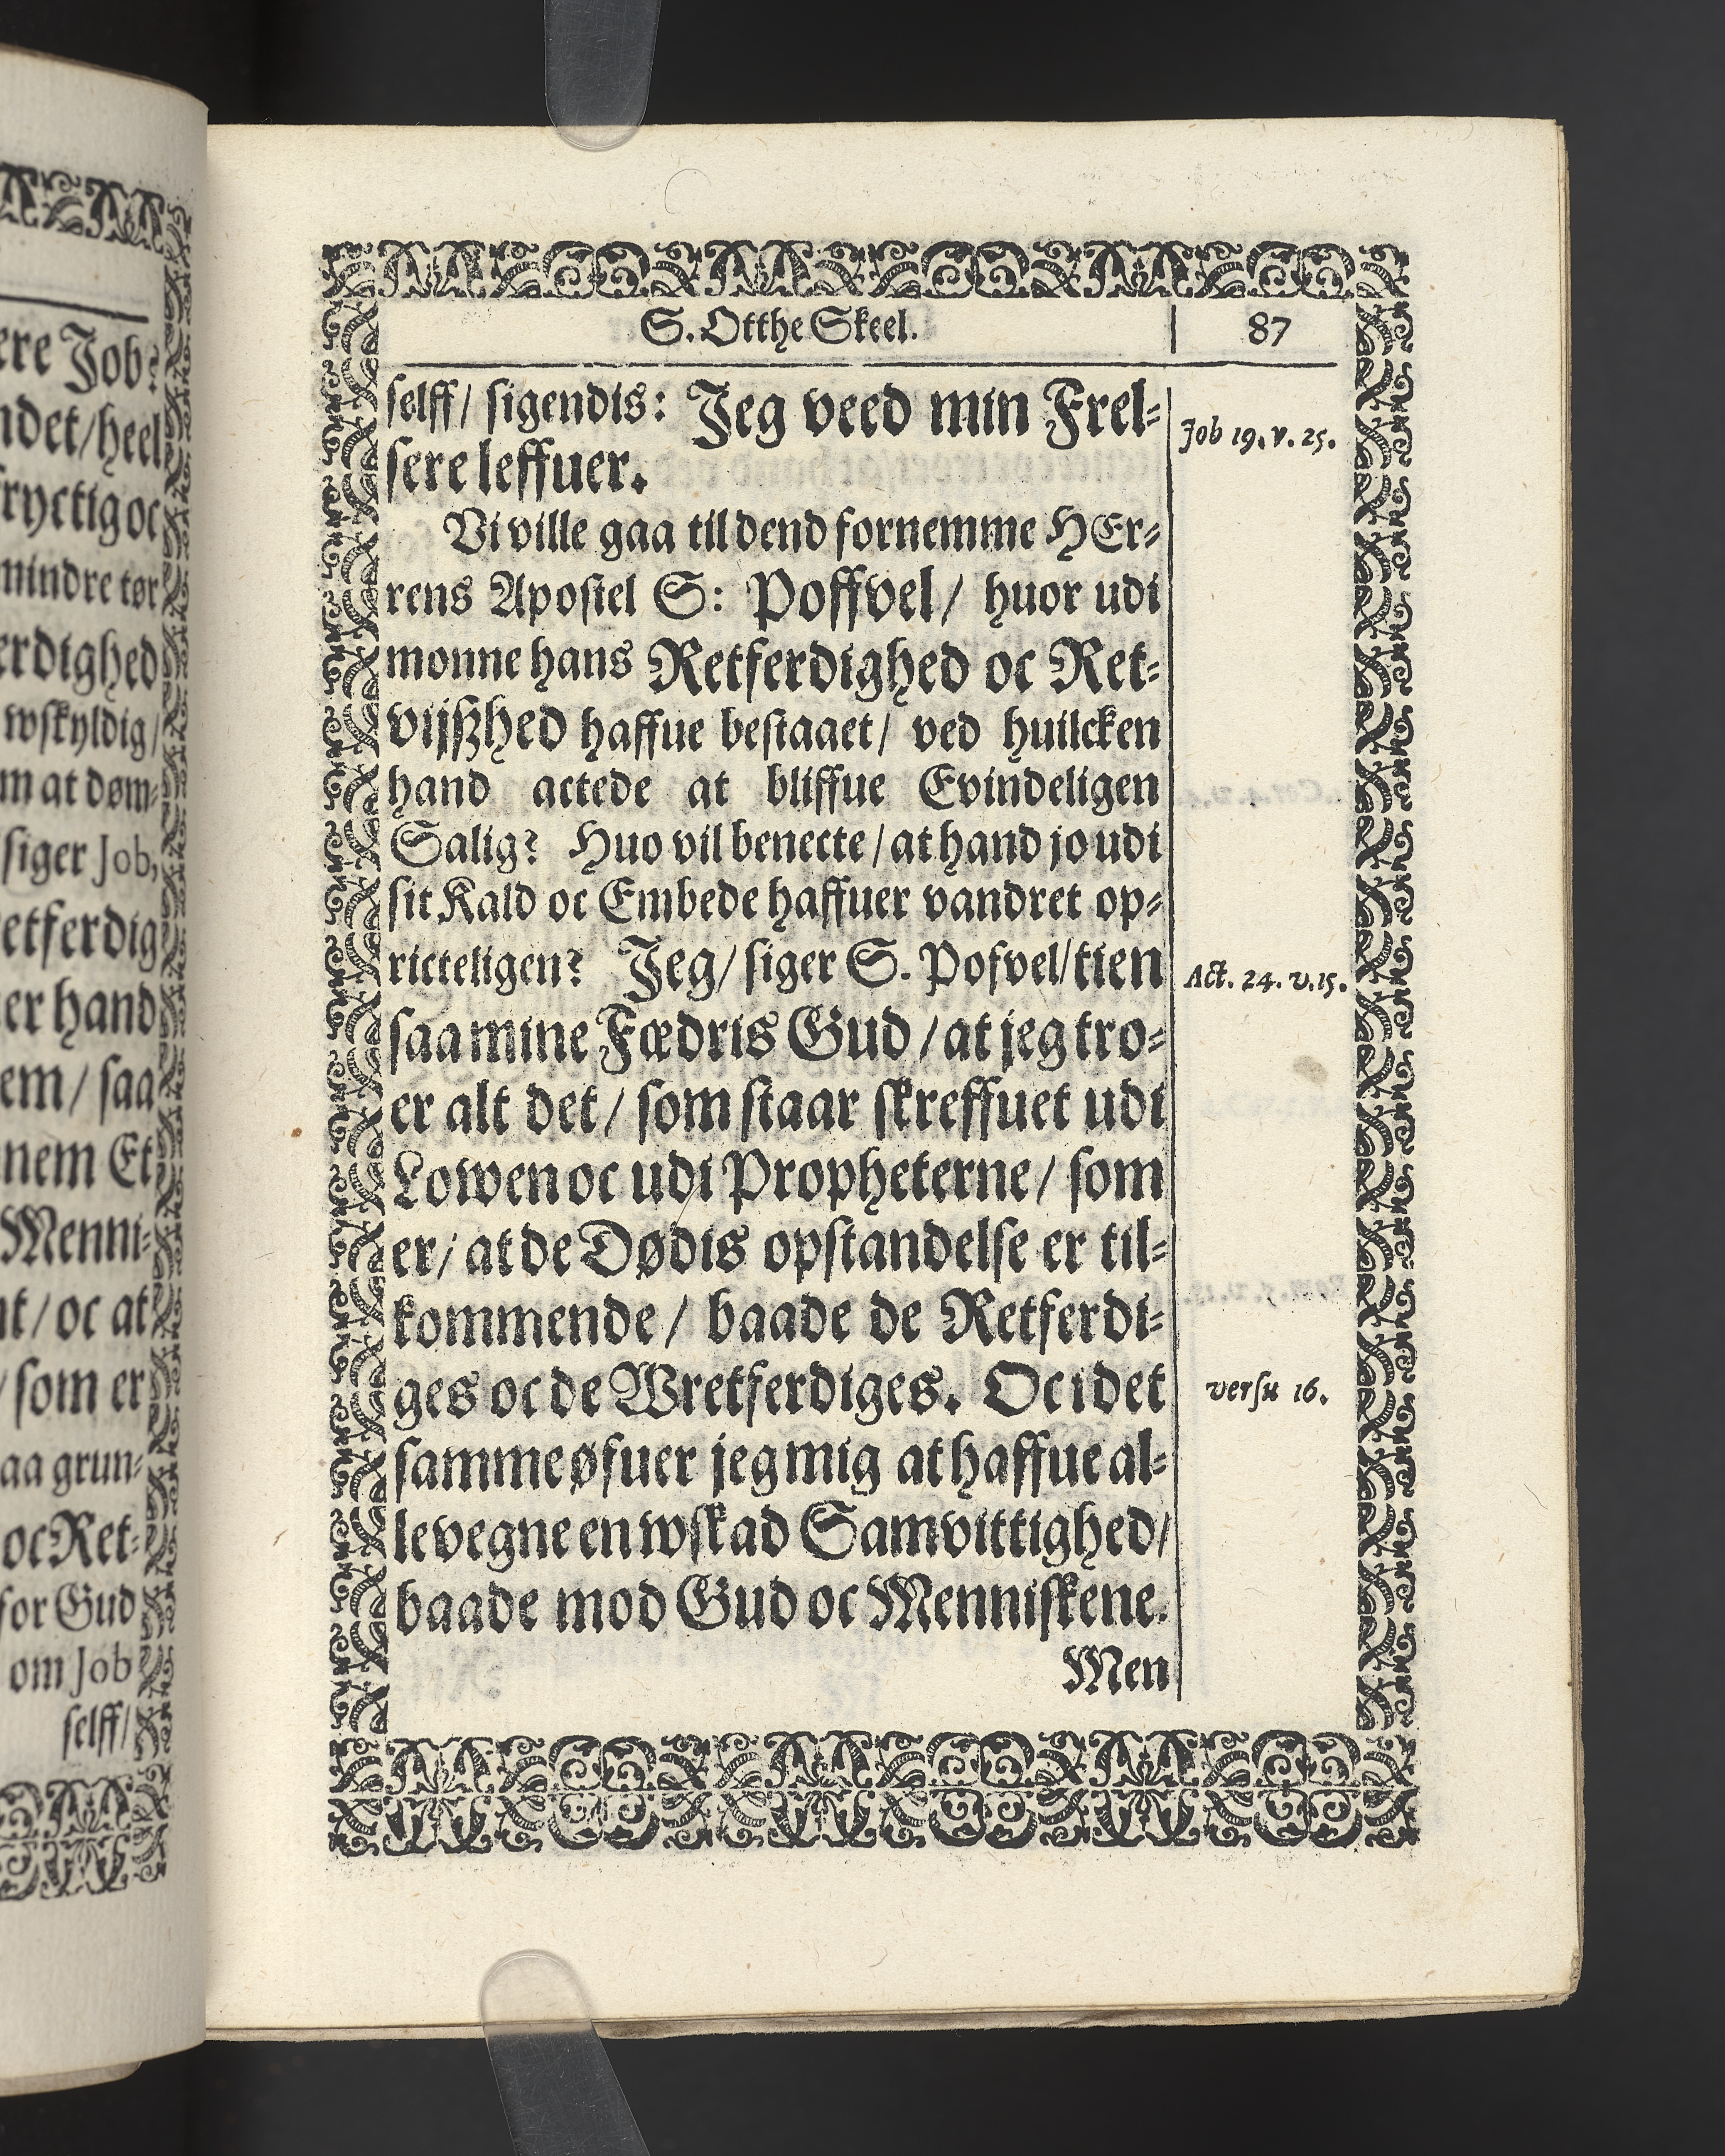 ere Job:
ndet/heel
ryctig oc
mindre tør
erdighed
wskyldig/
m at døm-
siger Job,
etferdig
er hand
em/ saa
nem Et
Menni-
nt/ oc at
/ som er
aa grun-
oc Ret-
for Gud
om Job
selff/
S. Otthe Skeel.
87
selff/ sigendis: Jeg veed min Frel-
Job 19. v. 25.
sere leffuer.
Vi ville gaa til dend fornemme HEr-
rens Apostel S: Poffvel/ huor udi
monne hans Retferdighed oc Ret-
vijszhed haffue bestaaet/ ved huilcken
hand actede at bliffue Evindeligen
Salig? Huo vil benecte/ at hand jo udi
sit Kald oc Embede haffuer vandret op-
ricteligen? Jeg/ siger S. Pofvel/ tien
Act. 24. v. 15.
saa mine Fædris Gud/ at jeg tro-
er alt det/ som staar skreffuet udi
Lowen oc udi Propheterne/ som
er/ at de Dødis opstandelse er til-
kommende/ baade de Retferdi-
ges oc de Wretferdiges. Oc i det
versu 16.
samme øfuer jeg mig at haffue al-
levegne en wskad Samvittighed/
baade mod Gud oc Menniskene.
Men